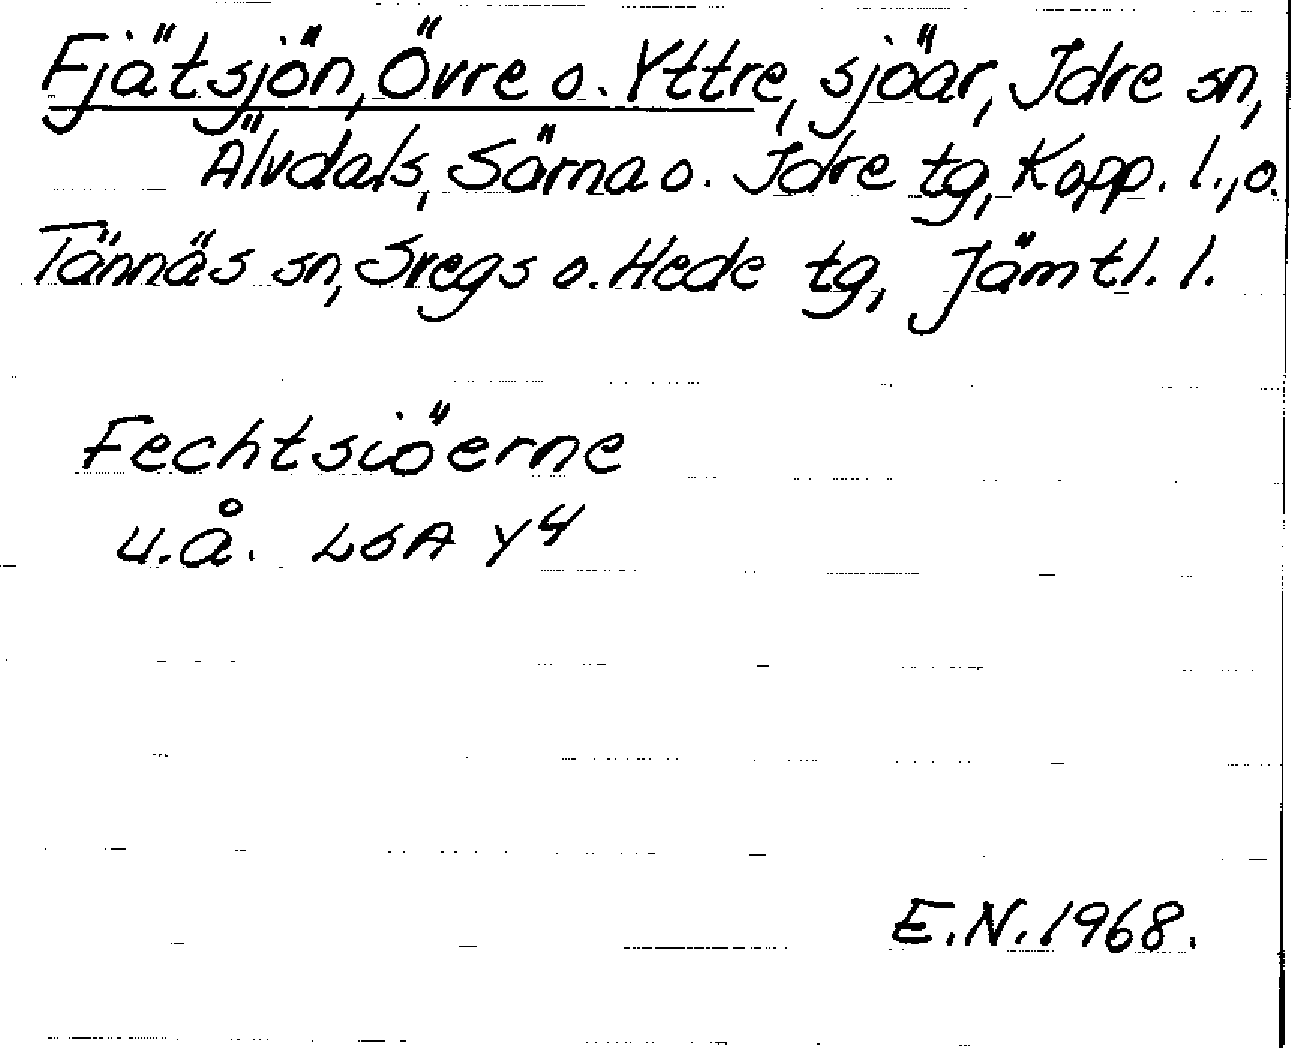 Fjätsjön, Övre o. Yttre, sjöar, Idre sn,
Älvdals, Särna o. Idre tg, Kopp. l., o.
Tännäs sn, Svegs o. Hede tg, Jämtl. l.
Fechtsiöerne
u.å. LSA Y4
E.N. 1968.